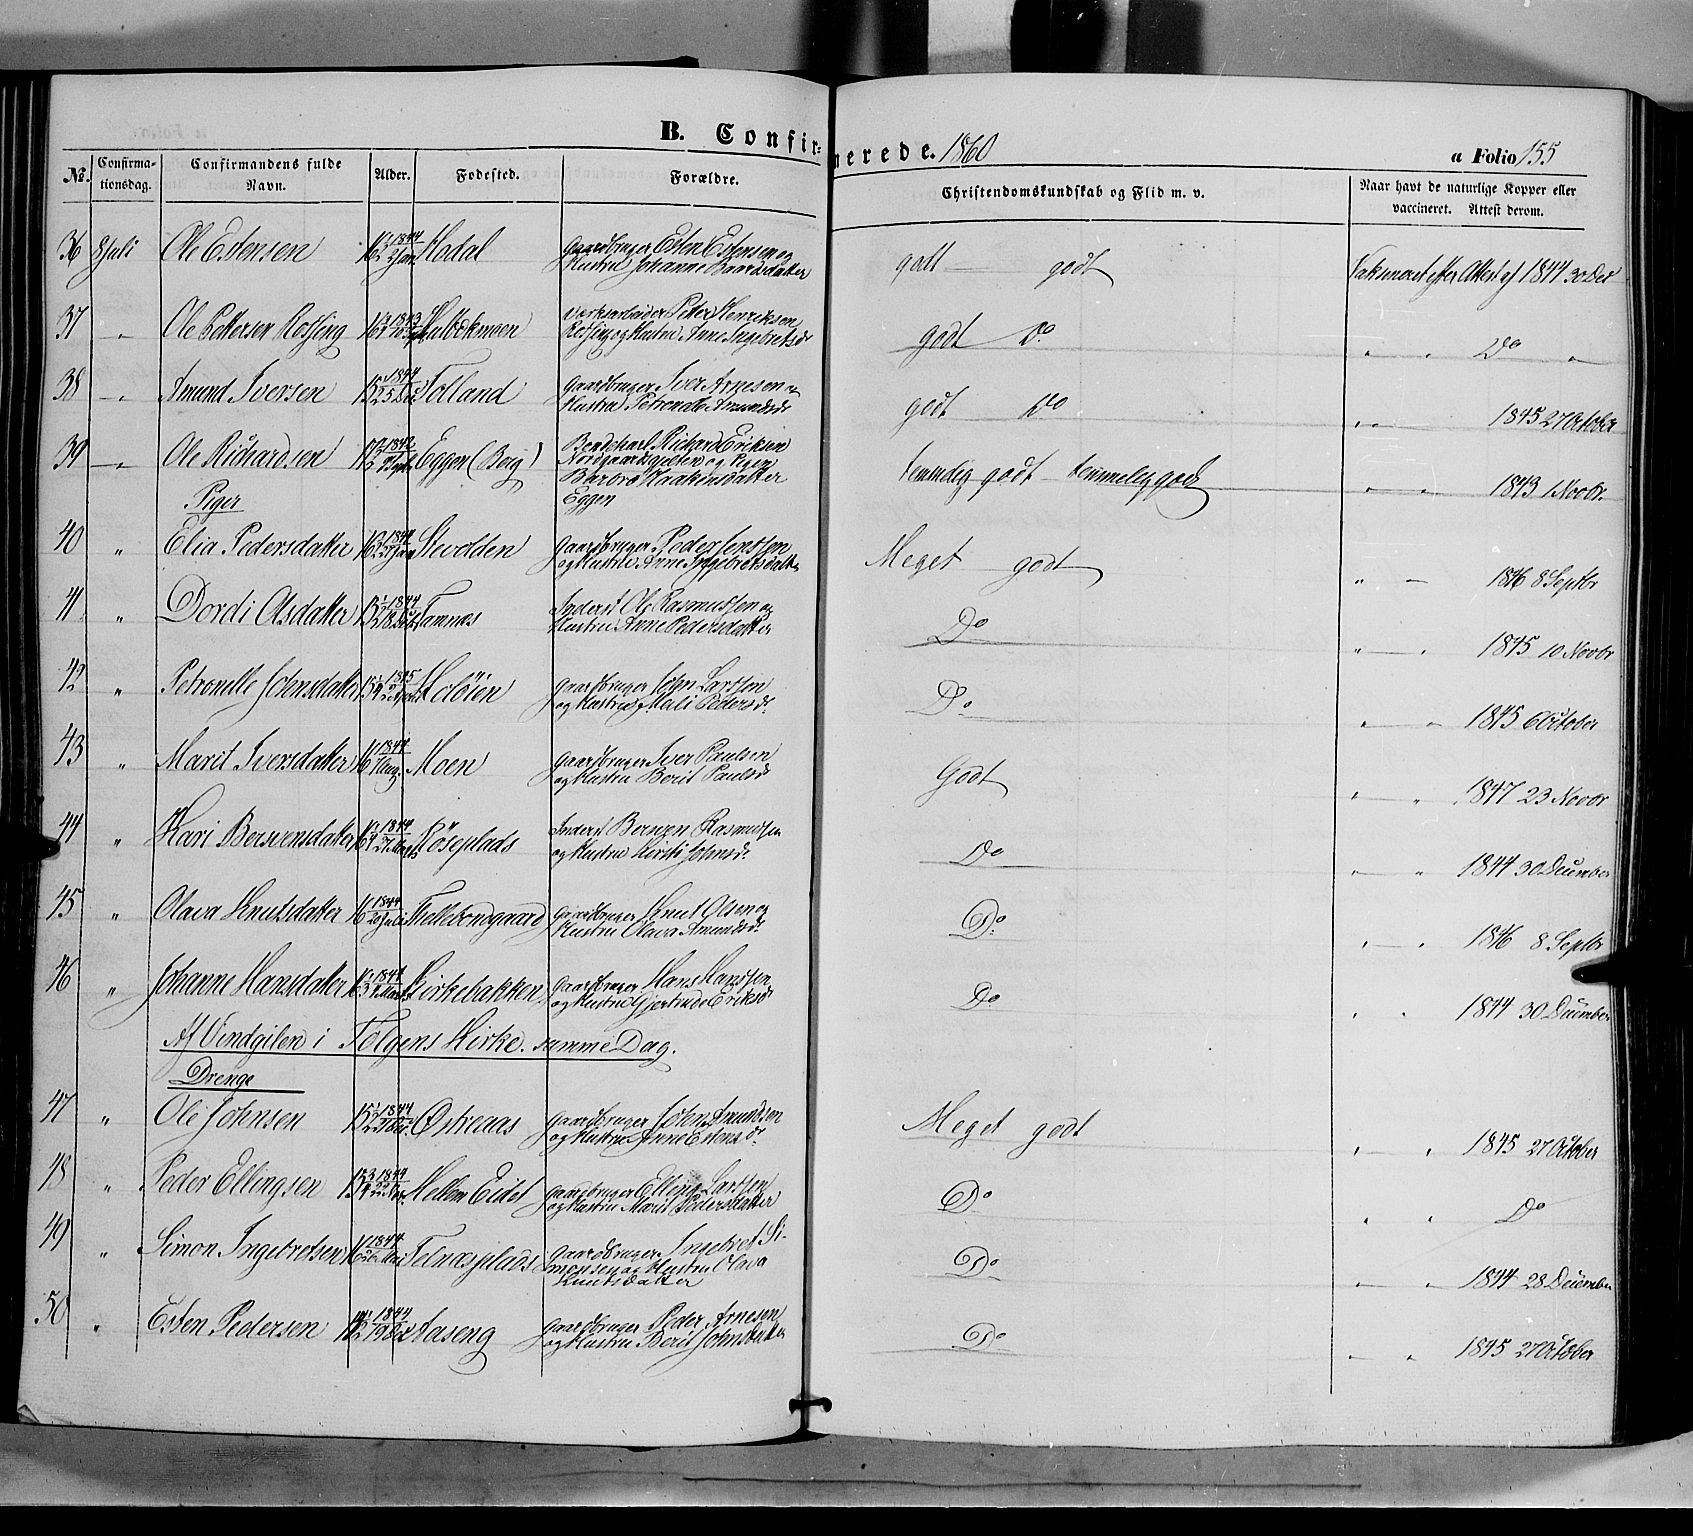 B. Confir-
merede. 1860
a Folio 155
No. Confirma-tionsdag. Confirmandens fulde Navn. Alder. Fødested. Forældre. Christendomskundskab og Flid m. v. Naar havt de naturlige Kopper eller vaccineret. Attest derom.
36 8 Juli Ole Estensen 1844 Jan Hodal Gaardbruger Esten Estensen og
Hustru Johanne Baardsdatter godt — godt Vakcineret efter Attest af 1844 30 Dec
37 " Ole Pettersen Røsling 1843 Verksarbeider Petter Henriksen
Røsling og Hustru Anne Ingebretsd. godt Do " " Do "
38 " Amund Iversen 1844 Tolland Gaardbruger Iver Arnesen og
Hustru Petronelle Amundsd. godt Do " " 1845 27 October
39 " Ole Richardsen 1842 Eggen (Berg) Richard Eriksen
Nordgaards og Pigen
Barbro Haakensdatter
Eggen temmelig godt — temmelig godt " " 1843 1 Novbr.
Piger
40 " Elia Pedersdatter Stevolden Gaardbruger Peder Jenssen
og Hustru Anne Ingebretsdatter Meget godt " — 1846 8 Septbr
41 " Dordi Olsdatter 1844 Tamnæs Inderst Ole Rasmussen og
Hustru Anne Pedersdatter Do " " 1845 10 Novbr
42 " Petronelle Johnsdatter 1845 Moløien Gaardbruger John Larssen
og Hustru Mali Pedersd. Do " " 1845 6 October
43 " Marit Iversdatter 16 1844 Aug. Moen Gaardbruger Iver Paulsen
og Hustru Berit Paulsd. Godt " " 1847 23 Novbr
44 " Kari Bersvensdatter 1844 Røseplads Inderst Bersven Rasmussen
og Hustru Kirsti Johnsd. Do " " 1844 30 December
45 " Olava Knutsdatter 16 1844 20 Juli Tellebondgaard Gaardbruger Knut Olsen og
Hustru Olava Amundsd. Do " " 1846 8 Septbr
46 " Johanne Hansdatter 1844 Kirkebakken Gaardbruger Hans Hanssen
og Hustru Gjertrude Eriksd. Do " " 1844 30 December
Af Vindgilen i Tolgens Kirke. samme Dag.
Drenge
47 " Ole Johnsen 15 1844 Østreaas Gaardbruger John Amundsen
og Hustru Anne Estensd. Meget godt " " 1845 27 October
48 " Peder Ellingsen 1844 Mellem Eidet Gaardbruger Elling Larssen
og Hustru Marit Pedersdatter Do " " Do
49 " Simon Ingebretsen 1844 Mai Telnæsplads Gaardbruger Ingebret Si-
monsen og Hustru Olava
Knutsdatter Do " " 1844 28 December
50 " Esten Pedersen 1844 Aaseng Gaardbruger Peder Arnesen
og Hustru Berit Johnsdatter Do " " 1845 27 October